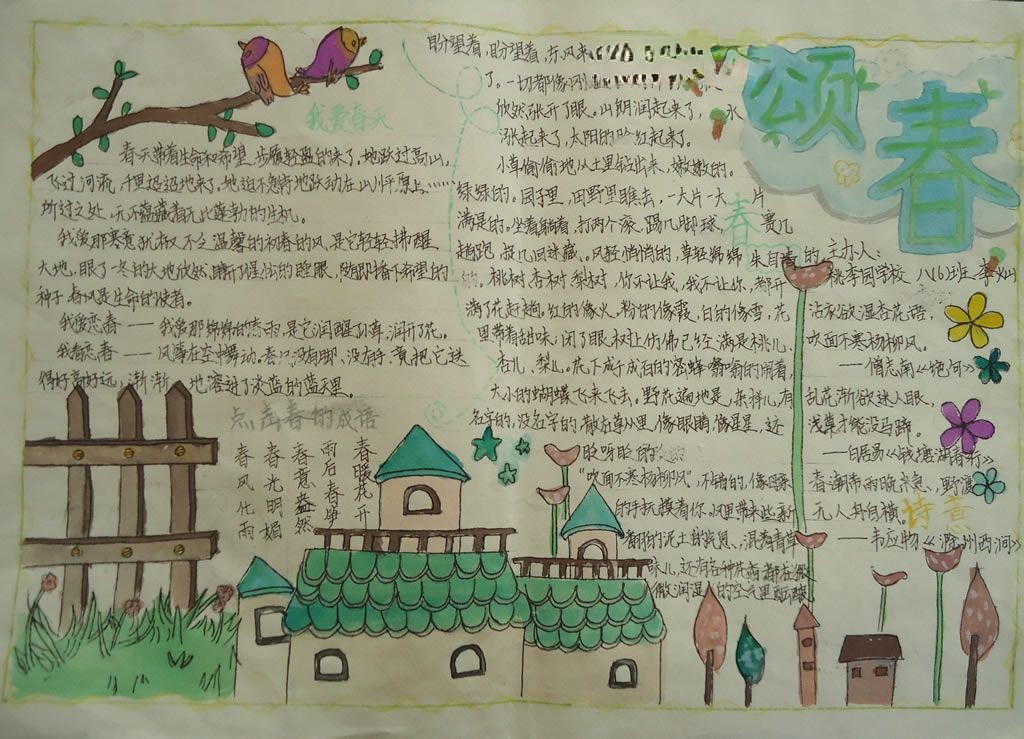 颂春
我爱春天
春天带着生命和希望,步履轻盈的来了,她跃过高山,
飞过河流,千里迢迢地来了,她迫不急待地跃动在山川平原上……
所过之处,无不蕴藏着无比蓬勃的生机。
我爱那寒意犹
不乏温馨的初春的风,是它轻轻拂醒
大地,眠了一冬的大地欣然
睁开惺忪的睡眼,随即播下希望的
种子,春风是生命的使者。
我爱恋春——我爱那绵绵的
雨,是它润醒小草,润开了花。
风筝在空中舞动
没有脚,没有手,竟把它送
得好高好远,渐渐地溶进了淡蓝的蓝天里。
点击春的成语
春暖花开
雨后春笋
春意盎然
春光明媚
春风化雨
盼望着,盼望着,东风来
了。一切都像刚
欣然张开了眼。山朗润起来了,水
涨起来了,太阳的脸红起来了。
小草偷偷地从土里钻出来,嫩嫩的。
绿绿的。园子里,田野里瞧去,一大片一大片
满是的,坐着躺着,打两个滚,踢几脚球,赛几
趟跑,捉几回迷藏。风轻悄悄的,草轻绵绵的
的。桃树,杏树,梨树,你不让我,我不让你,都开
满了花赶趟。红的像火,粉的像霞,白的像雪,花
里带着甜味,闭了眼,树上仿佛已经满是桃儿,
杏儿,梨儿。花下成千成百的蜜蜂嗡嗡的闹着,
大小的蝴蝶飞来飞去。野花遍地是,杂样儿,有
名字的,没名字的,散在草丛里,像眼睛,像星星,还
眨呀眨的
“吹面不寒杨柳风”,不错的,像母亲
的手抚摸着你,风里带来些新
翻的泥土的气息,混着青草
味儿,还有各种花的香都在微
微润湿的空气里酝酿
春
朱自清
主办人:
桃李园学校 八(6)班 李
沾衣欲湿杏花雨,
吹面不寒杨柳风。
——僧志南《绝句》
乱花渐欲迷人眼,
浅草才能没马蹄。
——白居易《钱塘湖春行》
春潮带雨晚来急,野渡
无人舟自横。
——韦应物《滁州西涧》
诗意